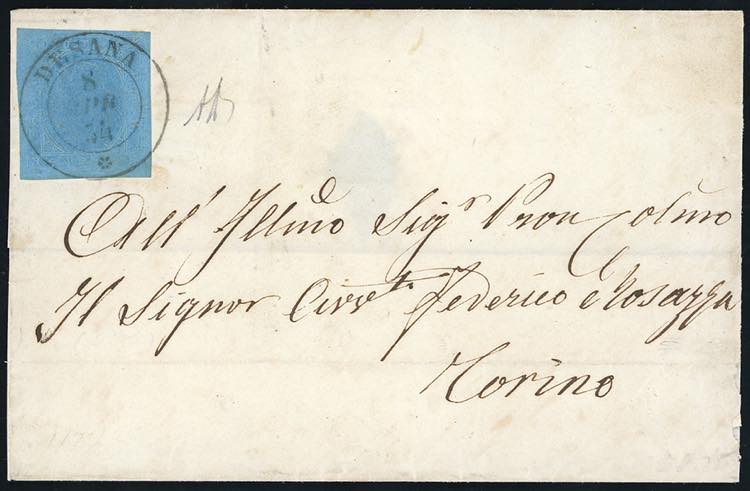 DESANA
8
APR
54
All' Illmo Sigr Pron Colmo
Il Signor Federico Rosazza
Torino